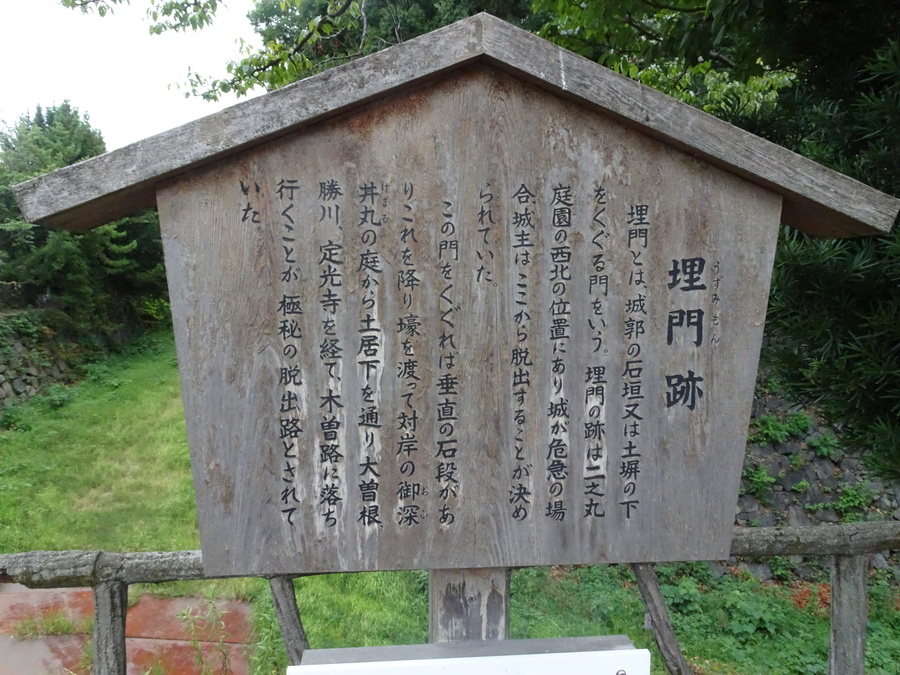 埋門跡
うずみもん
埋門とは、城郭の石垣又は土塀の下
をくぐる門をいう。埋門の跡は二之丸
庭園の西北の位置にあり城が危急の場
合、城主はここから脱出することが決め
られていた。
この門をくぐれば垂直の石段があ
りこれを降り壕を渡って対岸の御深
井丸の庭から土居下を通り大曽根、
勝川、定光寺を経て、木曽路に落ち
行くことが極秘の脱出路とされて
いた。